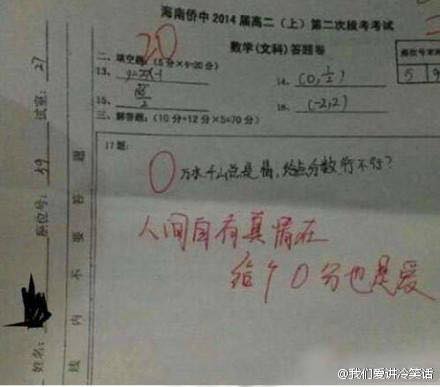 海南侨中2014届高二（上）第二次段考考试
数学(文科)答题卷
20
二、填空题（5分×4=20分）
13. y=2x-1
14. (0, 1/2)
15.
16. (-2,2)
三、解答题:（10分+12分×5=70分）
17题:
0
万水千山总是情,给点分数行不行?
人间自有真情在
给个0分也是爱
试室: 27
座位号: 39
姓名:
线内不要答题
@我们爱讲冷笑话